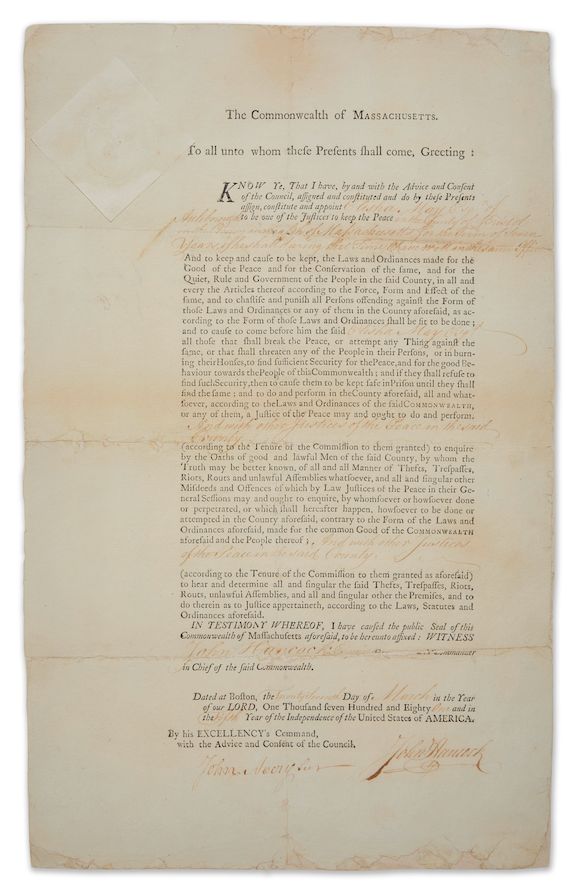 The Commonwealth of MASSACHUSETTS.
To all unto whom theſe Preſents ſhall come, Greeting:
KNOW Ye, That I have, by and with the Advice and Conſent
of the Council, aſſigned and conſtituted and do by theſe Preſents
aſſign, conſtitute and appoint Elisha May Esqr of
Attleborough to be one of the Juſtices to keep the Peace in the County of Bristol
Years, if he shall during that Time behave well in the same Office
And to keep and cauſe to be kept, the Laws and Ordinances made for the
Good of the Peace and for the Conſervation of the ſame, and for the
Quiet, Rule and Government of the People in the ſaid County, in all and
every the Articles thereof according to the Force, Form and Effect of the
ſame, and to chaſtiſe and puniſh all Perſons offending againſt the Form of
thoſe Laws and Ordinances or any of them in the County aforeſaid, as ac-
cording to the Form of thoſe Laws and Ordinances ſhall be fit to be done;
and to cauſe to come before him the ſaid Elisha May Esqr
all thoſe that ſhall break the Peace, or attempt any Thing againſt the
ſame, or that ſhall threaten any of the People in their Perſons, or in burn-
ing their Houſes, to find ſufficient Security for the Peace, and for the good Be-
haviour towards the People of this Commonwealth; and if they ſhall refuſe to
find ſuch Security, then to cauſe them to be kept ſafe in Priſon until they ſhall
find the ſame; and to do and perform in the County aforeſaid, all and what-
ſoever, according to the Laws and Ordinances of the ſaid COMMONWEALTH,
or any of them, a Juſtice of the Peace may and ought to do and perform.
And with other Justices of the Peace in the said
County
(according to the Tenure of the Commiſſion to them granted) to enquire
by the Oaths of good and lawful Men of the ſaid County, by whom the
Truth may be better known, of all and all Manner of Thefts, Treſpaſſes,
Riots, Routs and unlawful Aſſemblies whatſoever, and all and ſingular other
Miſdeeds and Offences of which by Law Juſtices of the Peace in their Ge-
neral Seſſions may and ought to enquire, by whomſoever or howſoever done
or perpetrated, or which ſhall hereafter happen, howſoever to be done or
attempted in the County aforeſaid, contrary to the Form of the Laws and
Ordinances aforeſaid, made for the common Good of the COMMONWEALTH
aforeſaid and the People thereof; And with other Justices
of the Peace in the said County.
(according to the Tenure of the Commiſſion to them granted as aforeſaid)
to hear and determine all and ſingular the ſaid Thefts, Treſpaſſes, Riots,
Routs, unlawful Aſſemblies, and all and ſingular other the Premiſes, and to
do therein as to Juſtice appertaineth, according to the Laws, Statutes and
Ordinances aforeſaid.
IN TESTIMONY WHEREOF, I have cauſed the public Seal of this
Commonwealth of Maſſachuſetts aforeſaid, to be hereunto affixed: WITNESS
John Hancock Commander
in Chief of the ſaid Commonwealth.
Dated at Boſton, the Day of March in the Year
of our LORD, One Thouſand ſeven Hundred and Eighty One and in
the Fifth Year of the Independence of the United States of AMERICA.
By his EXCELLENCY's Command,
with the Advice and Conſent of the Council.
John Hancock
John Avery